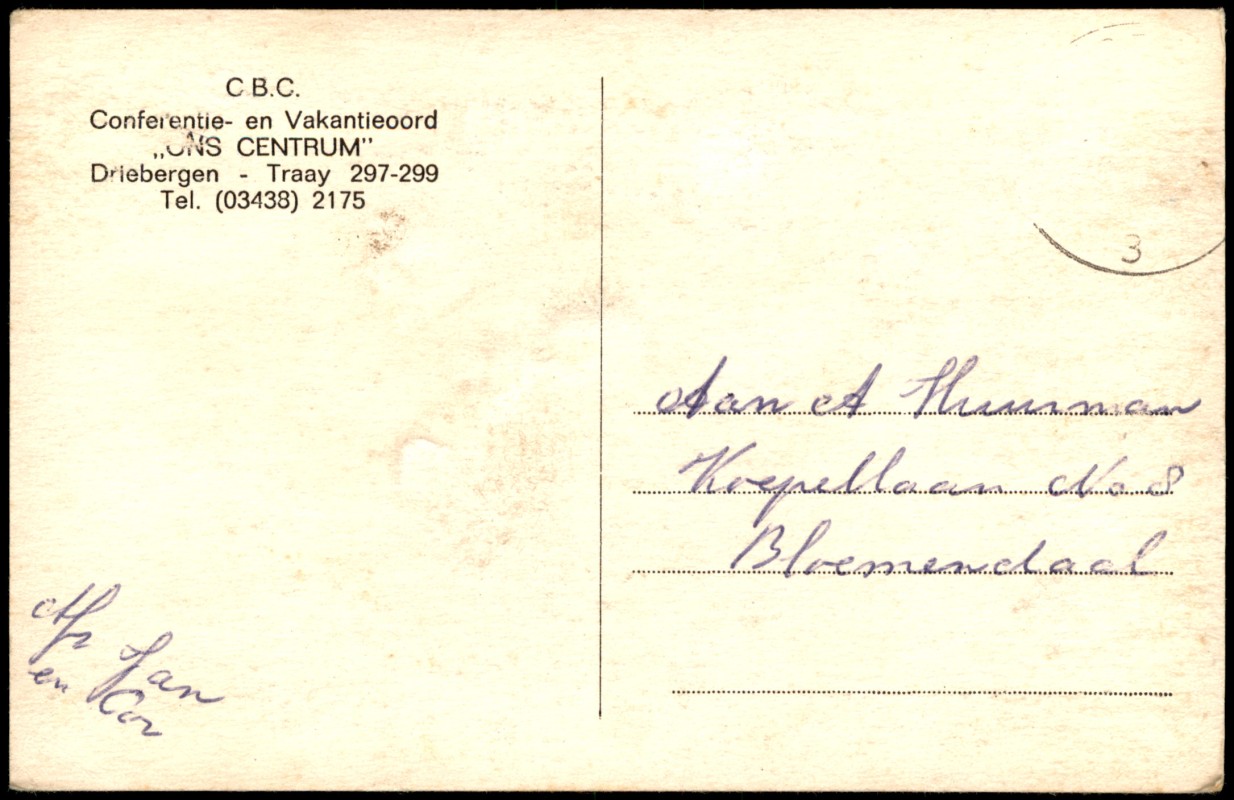 C.B.C.
Conferentie- en Vakantieoord
„ONS CENTRUM”
Driebergen - Traay 297-299
Tel. (03438) 2175
3
Aan A Huurman
Koepellaan No 8
Bloemendaal
Afz Jan
en Cor